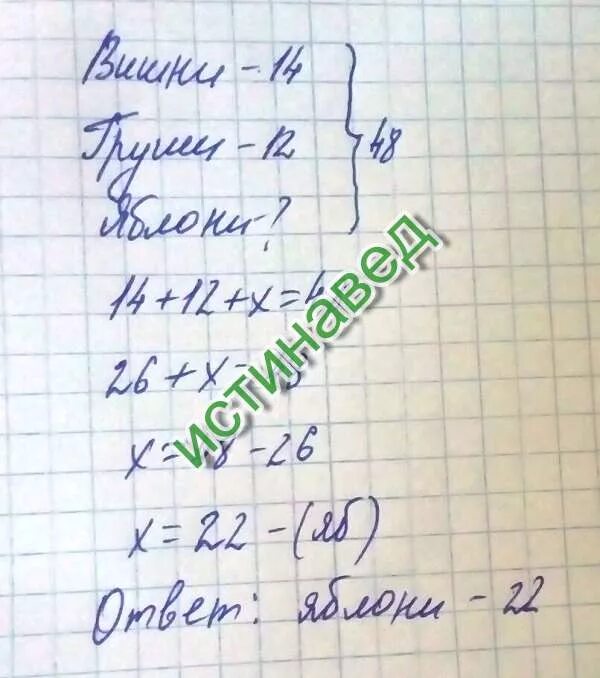 Вишни - 14
Груши - 12
48
Яблони - ?
14 + 12 + х = 4
26 + х =
х = 8 - 26
х = 22 - (яб)
Ответ: яблони - 22
истинавед